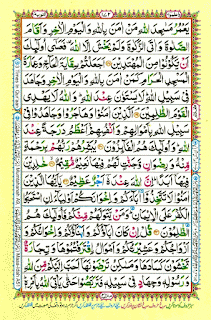 يَعْمُرُ مَسٰجِدَ اللّٰهِ مَنْ اٰمَنَ بِاللّٰهِ وَالْيَوْمِ الْاٰخِرِ وَاَقَامَ
الصَّلٰوةَ وَاٰتَى الزَّكٰوةَ وَلَمْ يَخْشَ اِلَّا اللّٰهَ فَعَسٰٓى اُولٰٓئِكَ
اَنْ يَّكُوْنُوْا مِنَ الْمُهْتَدِيْنَ اَجَعَلْتُمْ سِقَايَةَ الْحَآجِّ وَعِمَارَةَ
الْمَسْجِدِ الْحَرَامِ كَمَنْ اٰمَنَ بِاللّٰهِ وَالْيَوْمِ الْاٰخِرِ وَجٰهَدَ
فِيْ سَبِيْلِ اللّٰهِ لَا يَسْتَوٗنَ عِنْدَ اللّٰهِ وَاللّٰهُ لَا يَهْدِى
الْقَوْمَ الظّٰلِمِيْنَ اَلَّذِيْنَ اٰمَنُوْا وَهَاجَرُوْا وَجٰهَدُوْا فِيْ
سَبِيْلِ اللّٰهِ بِاَمْوَالِهِمْ وَاَنْفُسِهِمْ اَعْظَمُ دَرَجَةً عِنْدَ
اللّٰهِ وَاُولٰٓئِكَ هُمُ الْفَآئِزُوْنَ يُبَشِّرُهُمْ رَبُّهُمْ بِرَحْمَةٍ
مِّنْهُ وَرِضْوَانٍ وَّجَنّٰتٍ لَّهُمْ فِيْهَا نَعِيْمٌ مُّقِيْمٌ خٰلِدِيْنَ
فِيْهَآ اَبَدًا اِنَّ اللّٰهَ عِنْدَهٗٓ اَجْرٌ عَظِيْمٌ يٰٓاَيُّهَا الَّذِيْنَ
اٰمَنُوْا لَا تَتَّخِذُوْٓا اٰبَآءَكُمْ وَاِخْوَانَكُمْ اَوْلِيَآءَ اِنِ اسْتَحَبُّوا
الْكُفْرَ عَلَى الْاِيْمَانِ وَمَنْ يَّتَوَلَّهُمْ مِّنْكُمْ فَاُولٰٓئِكَ هُمُ
الظّٰلِمُوْنَ قُلْ اِنْ كَانَ اٰبَآؤُكُمْ وَاَبْنَآؤُكُمْ وَاِخْوَانُكُمْ
وَاَزْوَاجُكُمْ وَعَشِيْرَتُكُمْ وَاَمْوَالُ ۨاقْتَرَفْتُمُوْهَا وَتِجَارَةٌ
تَخْشَوْنَ كَسَادَهَا وَمَسٰكِنُ تَرْضَوْنَهَآ اَحَبَّ اِلَيْكُمْ مِّنَ اللّٰهِ
وَرَسُوْلِهٖ وَجِهَادٍ فِيْ سَبِيْلِهٖ فَتَرَبَّصُوْا حَتّٰى يَاْتِيَ اللّٰهُ بِاَمْرِهٖ